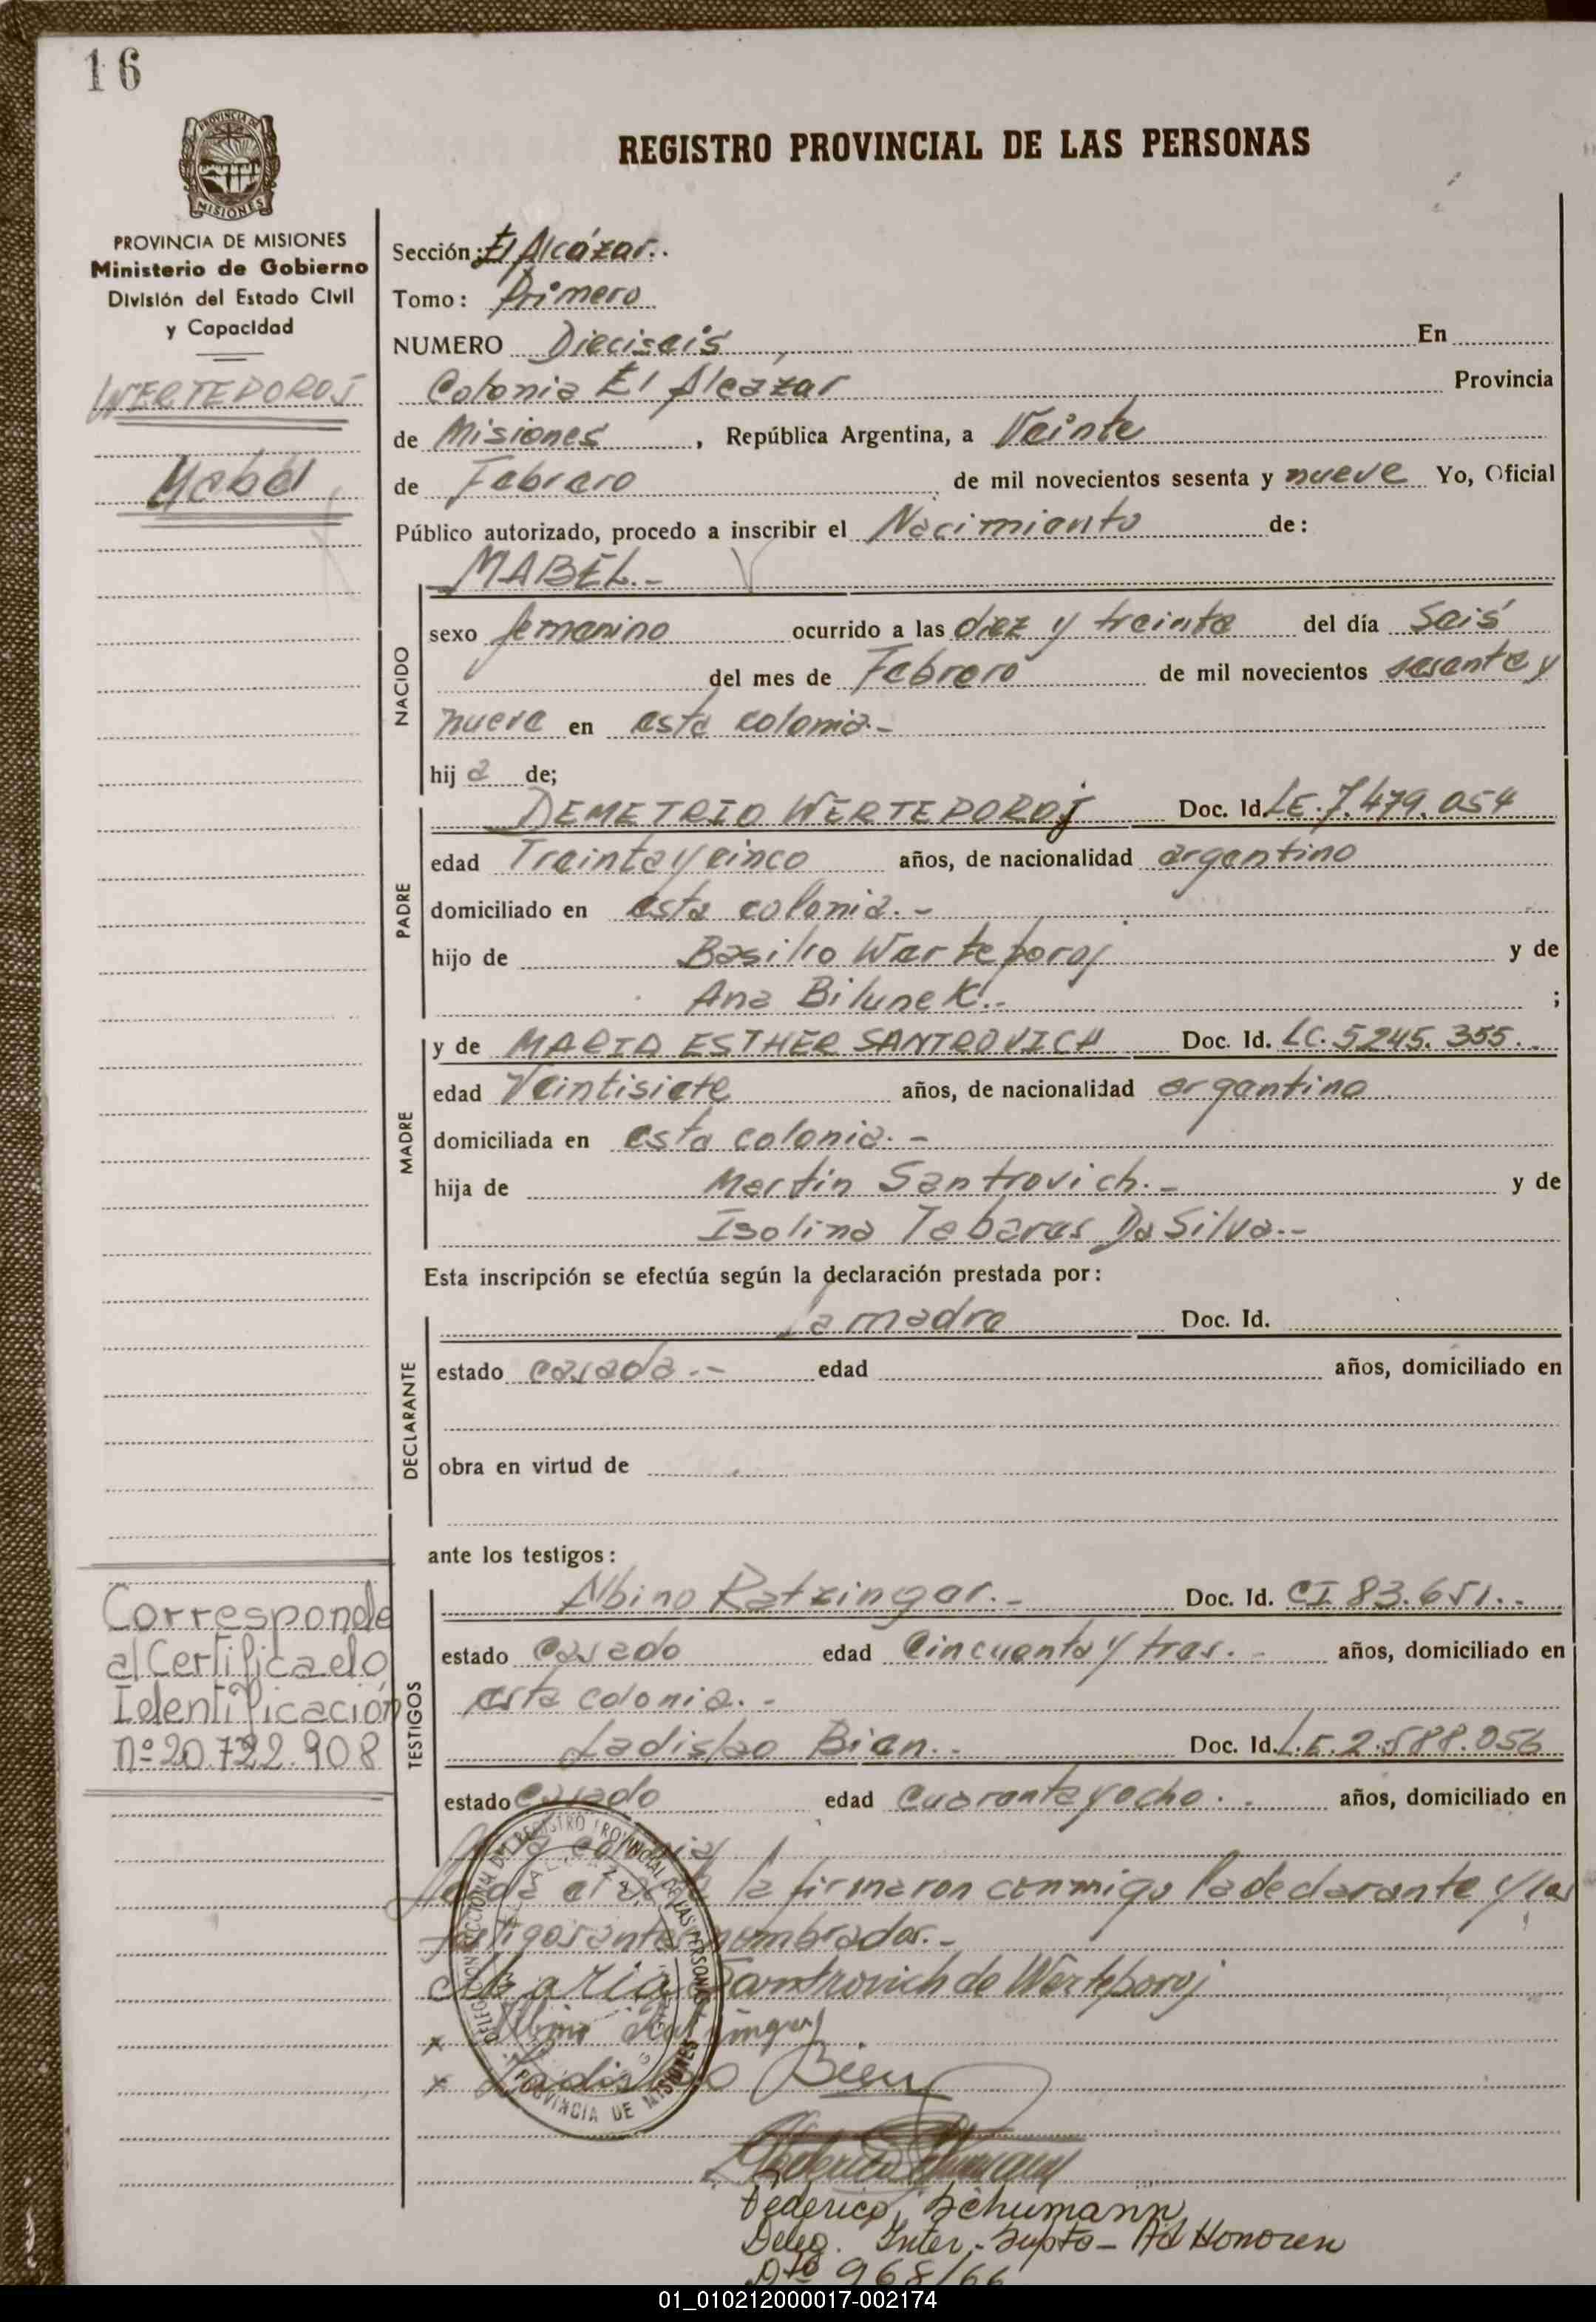 16
PROVINCIA DE
MISIONES
PROVINCIA DE MISIONES
Ministerio de Gobierno
División del Estado Civil
y Capacidad
WERTEPOROJ
Mabel
REGISTRO PROVINCIAL DE LAS PERSONAS
Sección: El Alcázar.
Tomo: Primero
NUMERO Dieciseis En
Colonia El Alcázar Provincia
de Misiones, República Argentina, a Veinte
de Febrero de mil novecientos sesenta y nueve Yo, Oficial
Público autorizado, procedo a inscribir el Nacimiento de:
MABEL.-
NACIDO
sexo femenino ocurrido a las diez y treinta del día Seis
del mes de Febrero de mil novecientos sesenta y
nueve en esta colonia.-
hij a de;
PADRE
DEMETRIO WERTEPOROJ Doc. Id. LE. 7.479.054
edad Treinta y cinco años, de nacionalidad argentino
domiciliado en esta colonia.-
hijo de Basilio Werteporoj y de
Ana Bilunek.- ;
MADRE
y de MARIA ESTHER SANTROVICH Doc. Id. LC. 5245.355.-
edad Veintisiete años, de nacionalidad argentina
domiciliada en esta colonia.-
hija de Martin Santrovich.- y de
Isolina Tabares Da Silva.-
Esta inscripción se efectúa según la declaración prestada por:
DECLARANTE
la madre Doc. Id.
estado casada.- edad años, domiciliado en
obra en virtud de
ante los testigos:
TESTIGOS
Albino Ratzinger.- Doc. Id. CI 83.651.-
estado Casado edad Cincuenta y tres.- años, domiciliado en
esta colonia.-
Ladislao Bien.- Doc. Id. L.E. 2.588.056
estado Casado edad Cuarenta y ocho.- años, domiciliado en
esta colonia
Leida el acta la firmaron conmigo la declarante y los
testigos antes nombrados.-
Maria Santrovich de Werteporoj
x Albino Ratzinger
x Ladislao Bien
Federico Schumann
Deleg. Inter. Supto - Ad Honoren
Dto 968/66
Corresponde
al Certificado
Identificación
nº 20.722.908
DEL REGISTRO PROVINCIAL DE LAS PERSONAS
PROVINCIA DE MISIONES
01_010212000017-002174